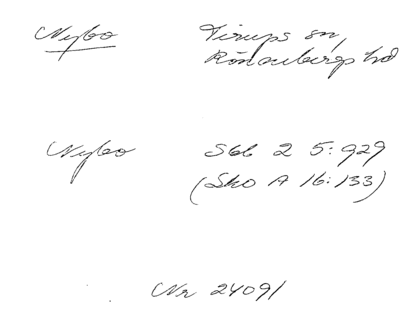 Nybo Tirups sn,
Rönnebergs hd
Nybo Skb 2 5:929
(Sko A 16:133)
Nr 24091